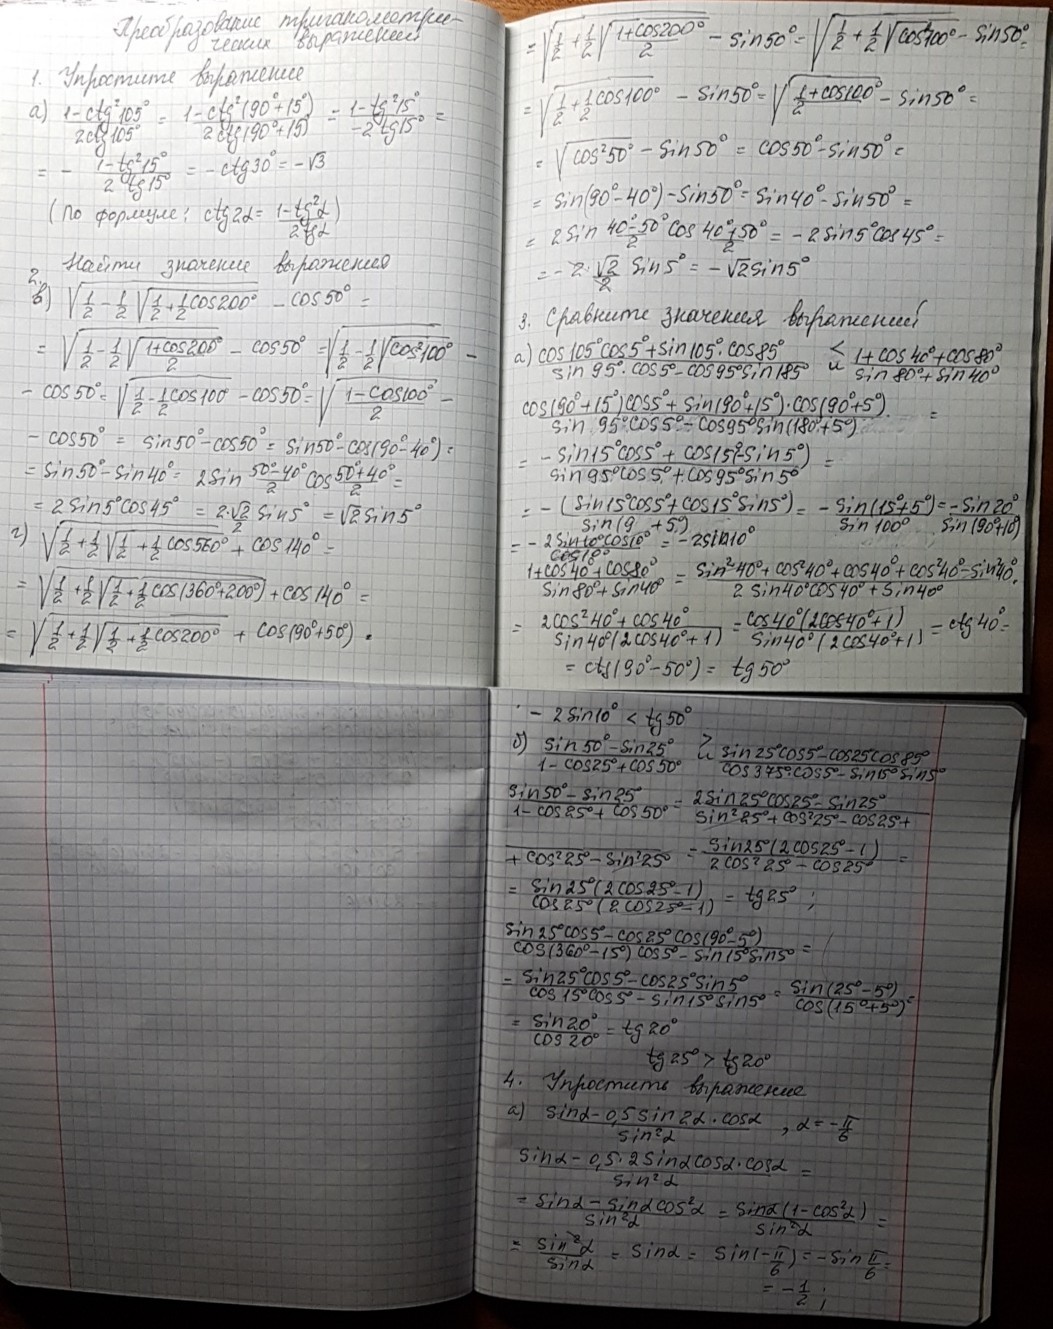 Преобразование тригонометри-
ческих выражений
1. Упростите выражение
а) (1-ctg²105°)/(2ctg105°) = (1-ctg²(90°+15°))/(2ctg(90°+15)) = (1-tg²15°)/(-2tg15°) =
= - (1-tg²15°)/(2tg15°) = -ctg30° = -√3
(По формуле: ctg2α = (1-tg²α)/(2tgα))
2. Найти значение выражения
в) √(1/2 - 1/2 √(1/2 + 1/2 cos200°)) - cos50° =
= √(1/2 - 1/2 √((1+cos200°)/2)) - cos50° = √(1/2 - 1/2 √(cos²100°)) -
- cos50° = √(1/2 - 1/2 cos100°) - cos50° = √((1-cos100°)/2) -
- cos50° = sin50° - cos50° = sin50° - cos(90°-40°) =
= sin50° - sin40° = 2sin (50°-40°)/2 cos (50°+40°)/2 =
= 2sin5°cos45° = 2·√2/2 sin5° = √2sin5°
г) √(1/2 + 1/2 √(1/2 + 1/2 cos560°)) + cos140° =
= √(1/2 + 1/2 √(1/2 + 1/2 cos(360°+200°))) + cos140° =
= √(1/2 + 1/2 √(1/2 + 1/2 cos200°)) + cos(90°+50°) =
= √(1/2 + 1/2 √((1+cos200°)/2)) - sin50° = √(1/2 + 1/2 √(cos²100°)) - sin50° =
= √(1/2 + 1/2 cos100°) - sin50° = √((1+cos100°)/2) - sin50° =
= √(cos²50°) - sin50° = cos50° - sin50° =
= sin(90°-40°) - sin50° = sin40° - sin50° =
= 2sin (40°-50°)/2 cos (40°+50°)/2 = -2sin5°cos45° =
= -2·√2/2 sin5° = -√2sin5°
3. Сравните значения выражений
а) (cos105°cos5°+sin105°·cos85°)/(sin95°·cos5°-cos95°sin185°) < и (1+cos40°+cos80°)/(sin80°+sin40°)
(cos(90°+15°)cos5°+sin(90°+15°)·cos(90°+5°))/(sin95°·cos5°-cos95°sin(180°+5°)) =
= (-sin15°cos5°+cos(15°-sin5°))/(sin95°cos5°+cos95°sin5°) =
= -(sin15°cos5°+cos15°sin5°)/(sin(9 +5°)) = -sin(15°+5°)/sin100° = -sin20°/sin(90°+10°)
= -2sin10°cos10°/cos10° = -2sin10°
(1+cos40°+cos80°)/(sin80°+sin40°) = (sin²40°+cos²40°+cos40°+cos²40°-sin²40°)/(2sin40°cos40°+sin40°)
= (2cos²40°+cos40°)/(sin40°(2cos40°+1)) = (cos40°(2cos40°+1))/(sin40°(2cos40°+1)) = ctg40° =
= ctg(90°-50°) = tg50°
-2sin10° < tg50°
б) (sin50°-sin25°)/(1-cos25°+cos50°) > и (sin25°cos5°-cos25°cos85°)/(cos375°cos5°-sin15°sin5°)
(sin50°-sin25°)/(1-cos25°+cos50°) = (2sin25°cos25°-sin25°)/(sin²25°+cos²25°-cos25°+
+cos²25°-sin²25°) = (sin25°(2cos25°-1))/(2cos²25°-cos25°) =
= (sin25°(2cos25°-1))/(cos25°(2cos25°-1)) = tg25°;
(sin25°cos5°-cos25°cos(90°-5°))/(cos(360°-15°)cos5°-sin15°sin5°) =
= (sin25°cos5°-cos25°sin5°)/(cos15°cos5°-sin15°sin5°) = sin(25°-5°)/cos(15°+5°) =
= sin20°/cos20° = tg20°
tg25° > tg20°
4. Упростить выражение
а) (sinα-0,5sin2α·cosα)/(sin²α), α=-π/6
(sinα-0,5·2sinαcosα·cosα)/(sin²α) =
= (sinα-sinαcos²α)/(sin²α) = (sinα(1-cos²α))/(sin²α) =
= sin²α/sinα = sinα = sin(-π/6) = -sin π/6 =
= -1/2;